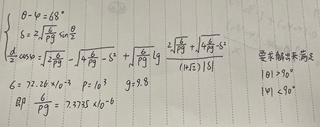 θ-φ=68°
δ=2√(6/ρg) sin θ/2
d/2 cosφ=√(2 6/ρg) - √(4 6/ρg - δ²) + √(6/ρg) lg (2√(6/ρg)+√(4 6/ρg - δ²))/((1+√2)|δ|)
要求解出来满足
|θ|>90°
|φ|<90°
6=72.26×10⁻³ ρ=10³ g=9.8
即 6/ρg = 7.3735×10⁻⁶